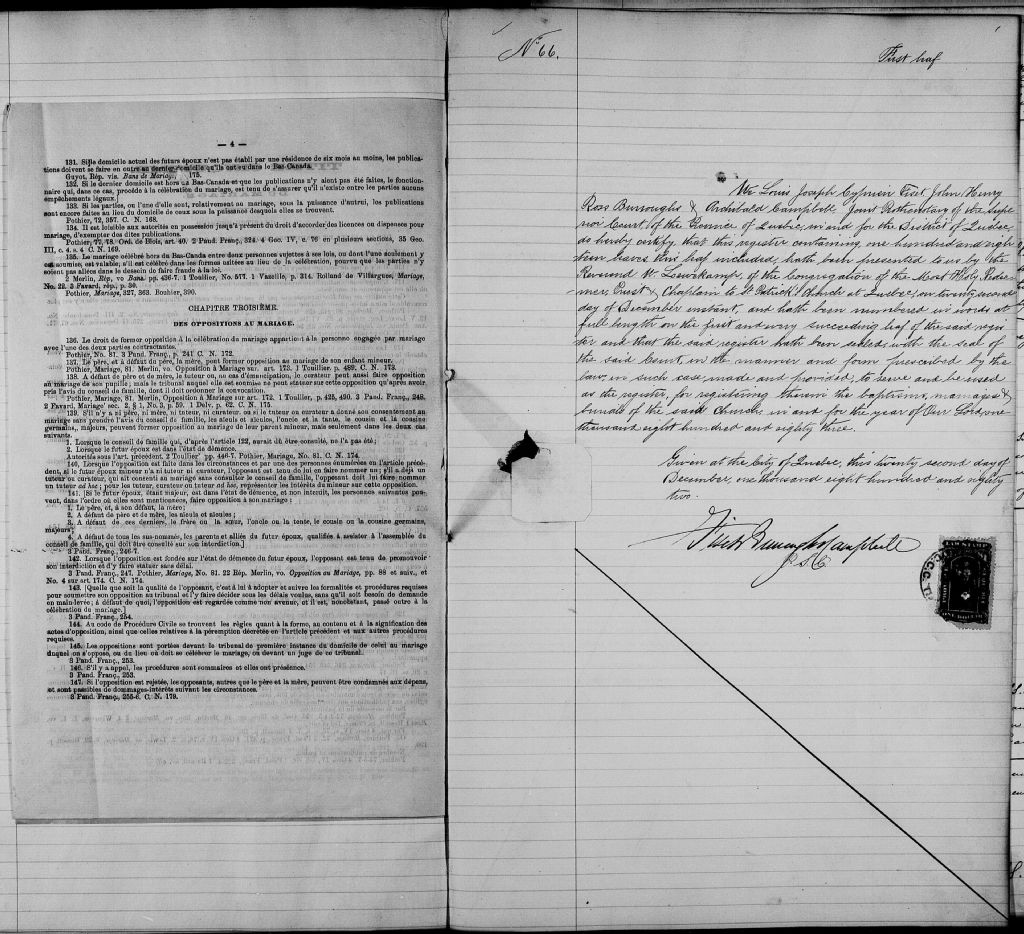 — 4 —
131. Si le domicile actuel des futurs époux n'est pas établi par une résidence de six mois au moins, les publica-
tions doivent se faire en outre au dernier domicile qu'ils ont eu dans le Bas-Canada.
Guyot, Rép. vis. Bans de Mariage, 175.
132. Si le dernier domicile est hors du Bas-Canada et que les publications n'y aient pas été faites, le fonction-
naire qui, dans ce cas, procède à la célébration du mariage, est tenu de s'assurer qu'il n'existe entre les parties aucuns
empêchements légaux.]
133. Si les parties, ou l'une d'elle sont, relativement au mariage, sous la puissance d'autrui, les publications
sont encore faites au lieu du domicile de ceux sous la puissance desquels elles se trouvent.
Pothier, 72, 357. C. N. 168.
134. Il est loisible aux autorités en possession jusqu'à présent du droit d'accorder des licences ou dispenses pour
mariage, d'exempter des dites publications.
Pothier, 77, 78. Ord. de Blois, art. 40. 2 Pand. Franç., 324. 4 Geo. IV, c. 76 en plusieurs sections, 35 Geo.
III, c. 4, s. 4 C. N. 169.
135. Le mariage célébré hors du Bas-Canada entre deux personnes sujettes à ses lois, ou dont l'une seulement y
est soumise, est valable, s'il est célébré dans les formes usitées au lieu de la célébration, pourvu que les parties n'y
soient pas allées dans le dessein de faire fraude à la loi.
2 Merlin, Rép, vo Bans. pp. 436-7. 1 Toullier, No. 577. 1 Vazeille, p. 214. Rolland de Villargues, Mariage,
No. 22. 3 Favard, rép., p. 30.
Pothier, Mariage, 327, 363. Bouhier, 390.
CHAPITRE TROISIÈME.
DES OPPOSITIONS AU MARIAGE.
136. Le droit de former opposition à la célébration du mariage appartient à la personne engagée par mariage
avec l'une des deux parties contractantes.
Pothier, No. 81. 3 Pand. Franç., p. 241 C. N. 172.
137. Le père, et à défaut du père, la mère, peut former opposition au mariage de son enfant mineur.
Pothier, Mariage, 81. Merlin, vo. Opposition à Mariage sur. art. 173. 1 Toullier. p. 489. C. N. 173.
138. A défaut de père et de mère, le tuteur, ou, au cas d'émancipation, le curateur peut aussi faire opposition
au mariage de son pupille; mais le tribunal auquel elle est soumise ne peut statuer sur cette opposition qu'après avoir
pris l'avis du conseil de famille, dont il doit ordonner la convocation.
Pothier, Mariage, 81. Merlin, Opposition à Mariage sur art. 172. 1 Toullier, p. 425, 490. 3 Pand. Franç., 248.
2 Favard, Mariage sec. 2, § 1, No. 3, p. 59. 1 Delv. p. 62. C. N. 175.
139. S'il n'y a ni père, ni mère, ni tuteur, ni curateur, ou si le tuteur ou curateur a donné son consentement au
mariage sans prendre l'avis du conseil de famille, les aïeuls et aïeules, l'oncle et la tante, le cousin et la cousine
germains, majeurs, peuvent former opposition au mariage de leur parent mineur, mais seulement dans les deux cas
suivants.
1. Lorsque le conseil de famille qui, d'après l'article 122, aurait dû être consulté, ne l'a pas été;
2. Lorsque le futur époux est dans l'état de démence.
Autorités sous l'art. précédent, 2 Toullier pp. 446-7. Pothier, Mariage, No. 81. C. N. 174.
140. Lorsque l'opposition est faite dans les circonstances et par une des personnes énumérées en l'article précé-
dent, si le futur époux mineur n'a ni tuteur ni curateur, l'opposant est tenu de lui en faire nommer un; s'il a déjà un
tuteur ou curateur, qui ait consenti au mariage sans consulter le conseil de famille, l'opposant doit lui faire nommer
un tuteur ad hoc; pour les tuteur, curateur ou tuteur ad hoc, représenter les intérêts du mineur sur cette opposition.
141. [Si le futur époux, étant majeur, est dans l'état de démence, et non interdit, les personnes suivantes peu-
vent, dans l'ordre où elles sont mentionnées, faire opposition à son mariage:
1. Le père, et, à son défaut, la mère;
2. A défaut de père et de mère, les aïeuls et aïeules;
3. A défaut de ces derniers, le frère ou la sœur, l'oncle ou la tante, le cousin ou la cousine germains,
majeurs;
4. A défaut de tous les sus-nommés, les parents et alliés du futur époux, qualifiés à assister à l'assemblée du
conseil de famille, qui doit être consulté sur son interdiction.]
3 Pand. Franç., 246-7.
142. Lorsque l'opposition est fondée sur l'état de démence du futur époux, l'opposant est tenu de promouvoir
son interdiction et d'y faire statuer sans délai.
3 Pand. Franç., 247. Pothier, Mariage, No. 81. 22 Rép. Merlin, vo. Opposition au Mariage, pp. 88 et suiv., et
No. 4 sur art. 174. C. N. 174.
143. [Quelle que soit la qualité de l'opposant, c'est à lui à adopter et suivre les formalités et procédures requises
pour soumettre son opposition au tribunal et l'y faire décider sous les délais voulus, sans qu'il soit besoin de demande
en main-levée; à défaut de quoi, l'opposition est regardée comme non avenue, et il est, nonobstant, passé outre à la
célébration du mariage.]
3 Pand. Franç., 254.
144. Au code de Procédure Civile se trouvent les règles quant à la forme, au contenu et à la signification des
actes d'opposition, ainsi que celles relatives à la péremption décrétée en l'article précédent et aux autres procédures
requises.
145. Les oppositions sont portées devant le tribunal de première instance du domicile de celui au mariage
duquel on s'oppose, ou du lieu où doit se célébrer le mariage, ou devant un juge de ce tribunal.
3 Pand. Franç., 253.
146. S'il y a appel, les procédures sont sommaires et elles ont préséance.
3 Pand. Franç., 253.
147. Si l'opposition est rejetée, les opposants, autres que le père et la mère, peuvent être condamnés aux dépens,
et sont passibles de dommages-intérêts suivant les circonstances.
3 Pand. Franç., 255-6. C. N. 179.
No 66.
First leaf
We Louis Joseph Cyprien Fiset John Henry
Ross Burroughs & Archibald Campbell Joint Prothonotary of the Supe-
rior Court, of the Province of Quebec, in and for the District of Quebec,
do hereby certify, that this register containing one hundred and eigh-
teen leaves this leaf included, hath been presented to us by the
Reverend W. Loewekamp, of the Congregation of the Most Holy Redee-
mer, Priest & Chaplain to St. Patrick's Church at Quebec, on twenty second
day of December instant, and hath been numbered in words at
full length on the first and every succeeding leaf of the said regis-
ter and that the said register hath been sealed with the seal of
the said Court, in the manner and form prescribed by the
law, in such case, made and provided, to serve and be used
as the register, for registering therein the baptisms, marriages &
burials of the said Church in and for the year of Our Lord, one
thousand eight hundred and eighty three.
Given at the City of Quebec, this twenty second day of
December, one thousand eight hundred and eighty
two.
Fiset Burroughs Campbell
P.S.C.